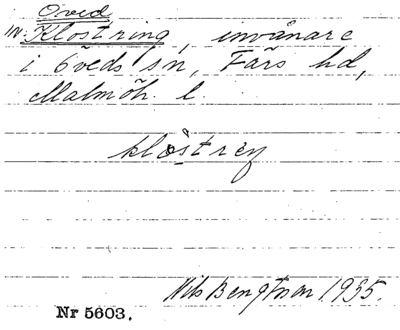 Öved
IN. Klostring, invånare
i Öveds sn, Färs hd,
Malmöh. l.
klostrey
Nils Bengtson 1935.
Nr 5603.